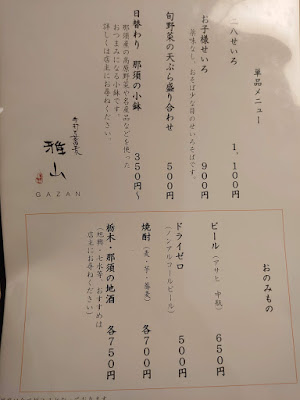 単品メニュー
二八せいろ 1,100円
お子様せいろ 900円
薬味なし、おそば少な目のせいろそばです。
旬野菜の天ぷら盛り合わせ 500円
日替わり 那須の小鉢 350円〜
那須産の高原野菜や名産品などを使った
おつまみになる小鉢です。
詳しくは店主にお尋ねください。
雅山
GAZAN
おのみもの
ビール（アサヒ 中瓶） 650円
ドライゼロ 500円
（ノンアルコールビール）
焼酎（麦・芋・蕎麦） 各700円
栃木・那須の地酒 各750円
店主にお尋ねください）